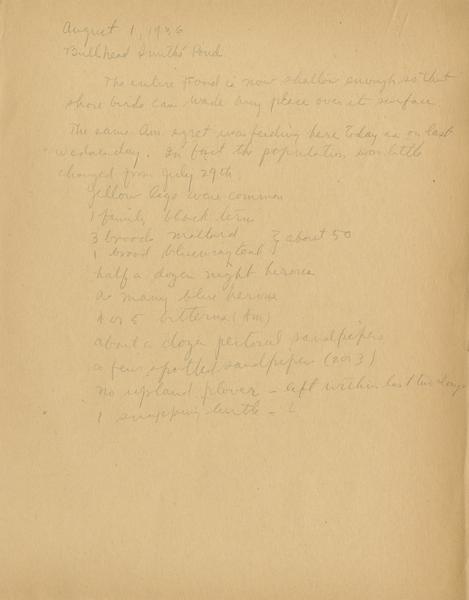 August 1, 1936
Bullhead Smiths' Pond
The entire pond is now shallow enough so that
shore birds can wade any place over it surface
The same Am. egret was feeding here today as on last
Wednesday. In fact the population was little
changed from July 29th.
Yellow legs were common
1 family black tern
3 broods mallard } about 50
1 brood bluewing teal
half a dozen night herons
as many blue herons
4 or 5 bitterns (Am)
about a dozen pectoral sandpipers
a few spotted sandpiper (2 or 3)
no upland plover - left within last two days
1 snapping turtle -